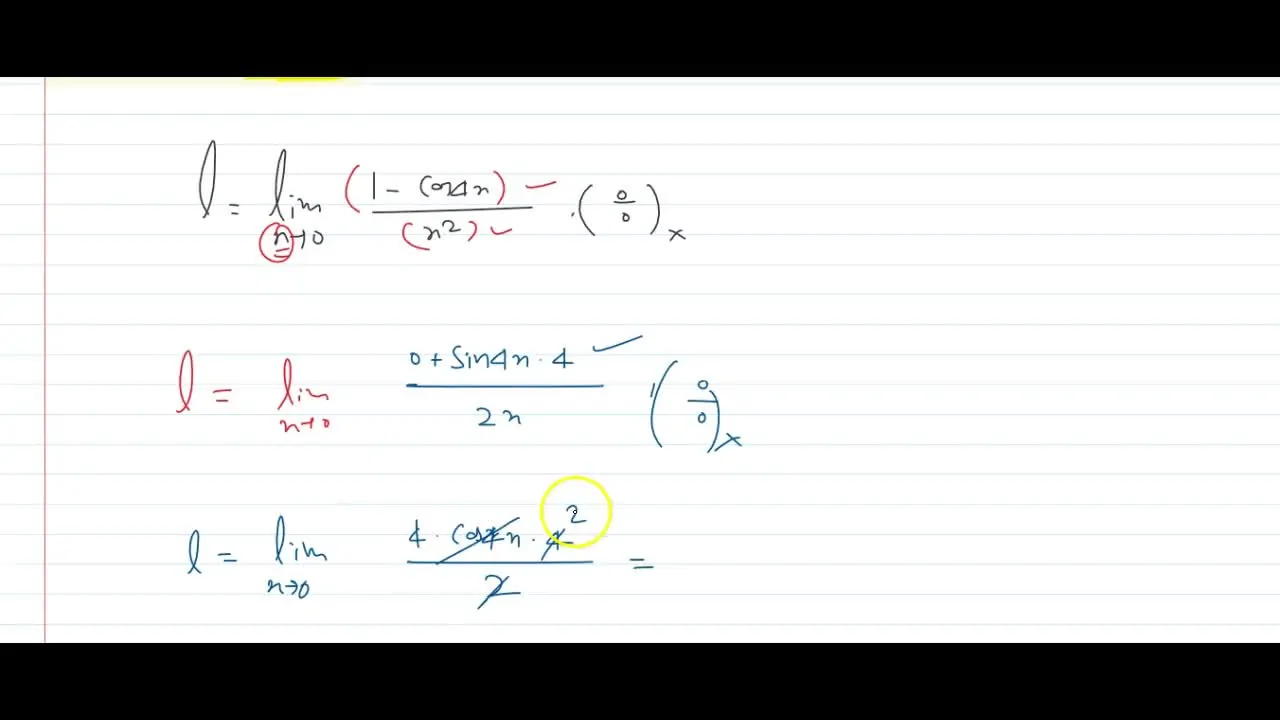 l = lim n→0 (1 - cos4n) / (n²) · (0/0)x
l = lim n→0 0 + sin4n · 4 / 2n (0/0)x
l = lim n→0 4 · cos4n · 4 2 / 2 =